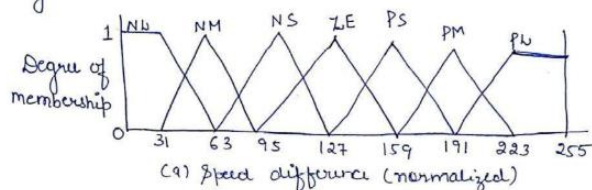 1 NL NM NS ZE PS PM PL
Degree of
membership
0 31 63 95 127 159 191 223 255
(a) Speed difference (normalized)